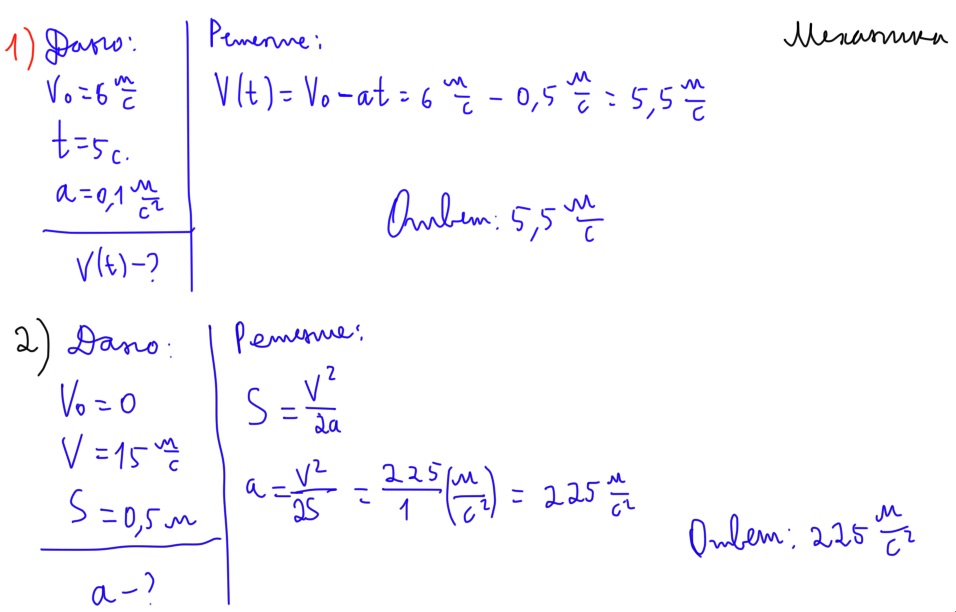 Механика
1) Дано:
V₀ = 6 м/с
t = 5 с.
a = 0,1 м/с²
V(t) - ?
Решение:
V(t) = V₀ - at = 6 м/с - 0,5 м/с = 5,5 м/с
Ответ: 5,5 м/с
2) Дано:
V₀ = 0
V = 15 м/с
S = 0,5 м
a - ?
Решение:
S = V²/2a
a = V²/2S = 225/1 (м/с²) = 225 м/с²
Ответ: 225 м/с²